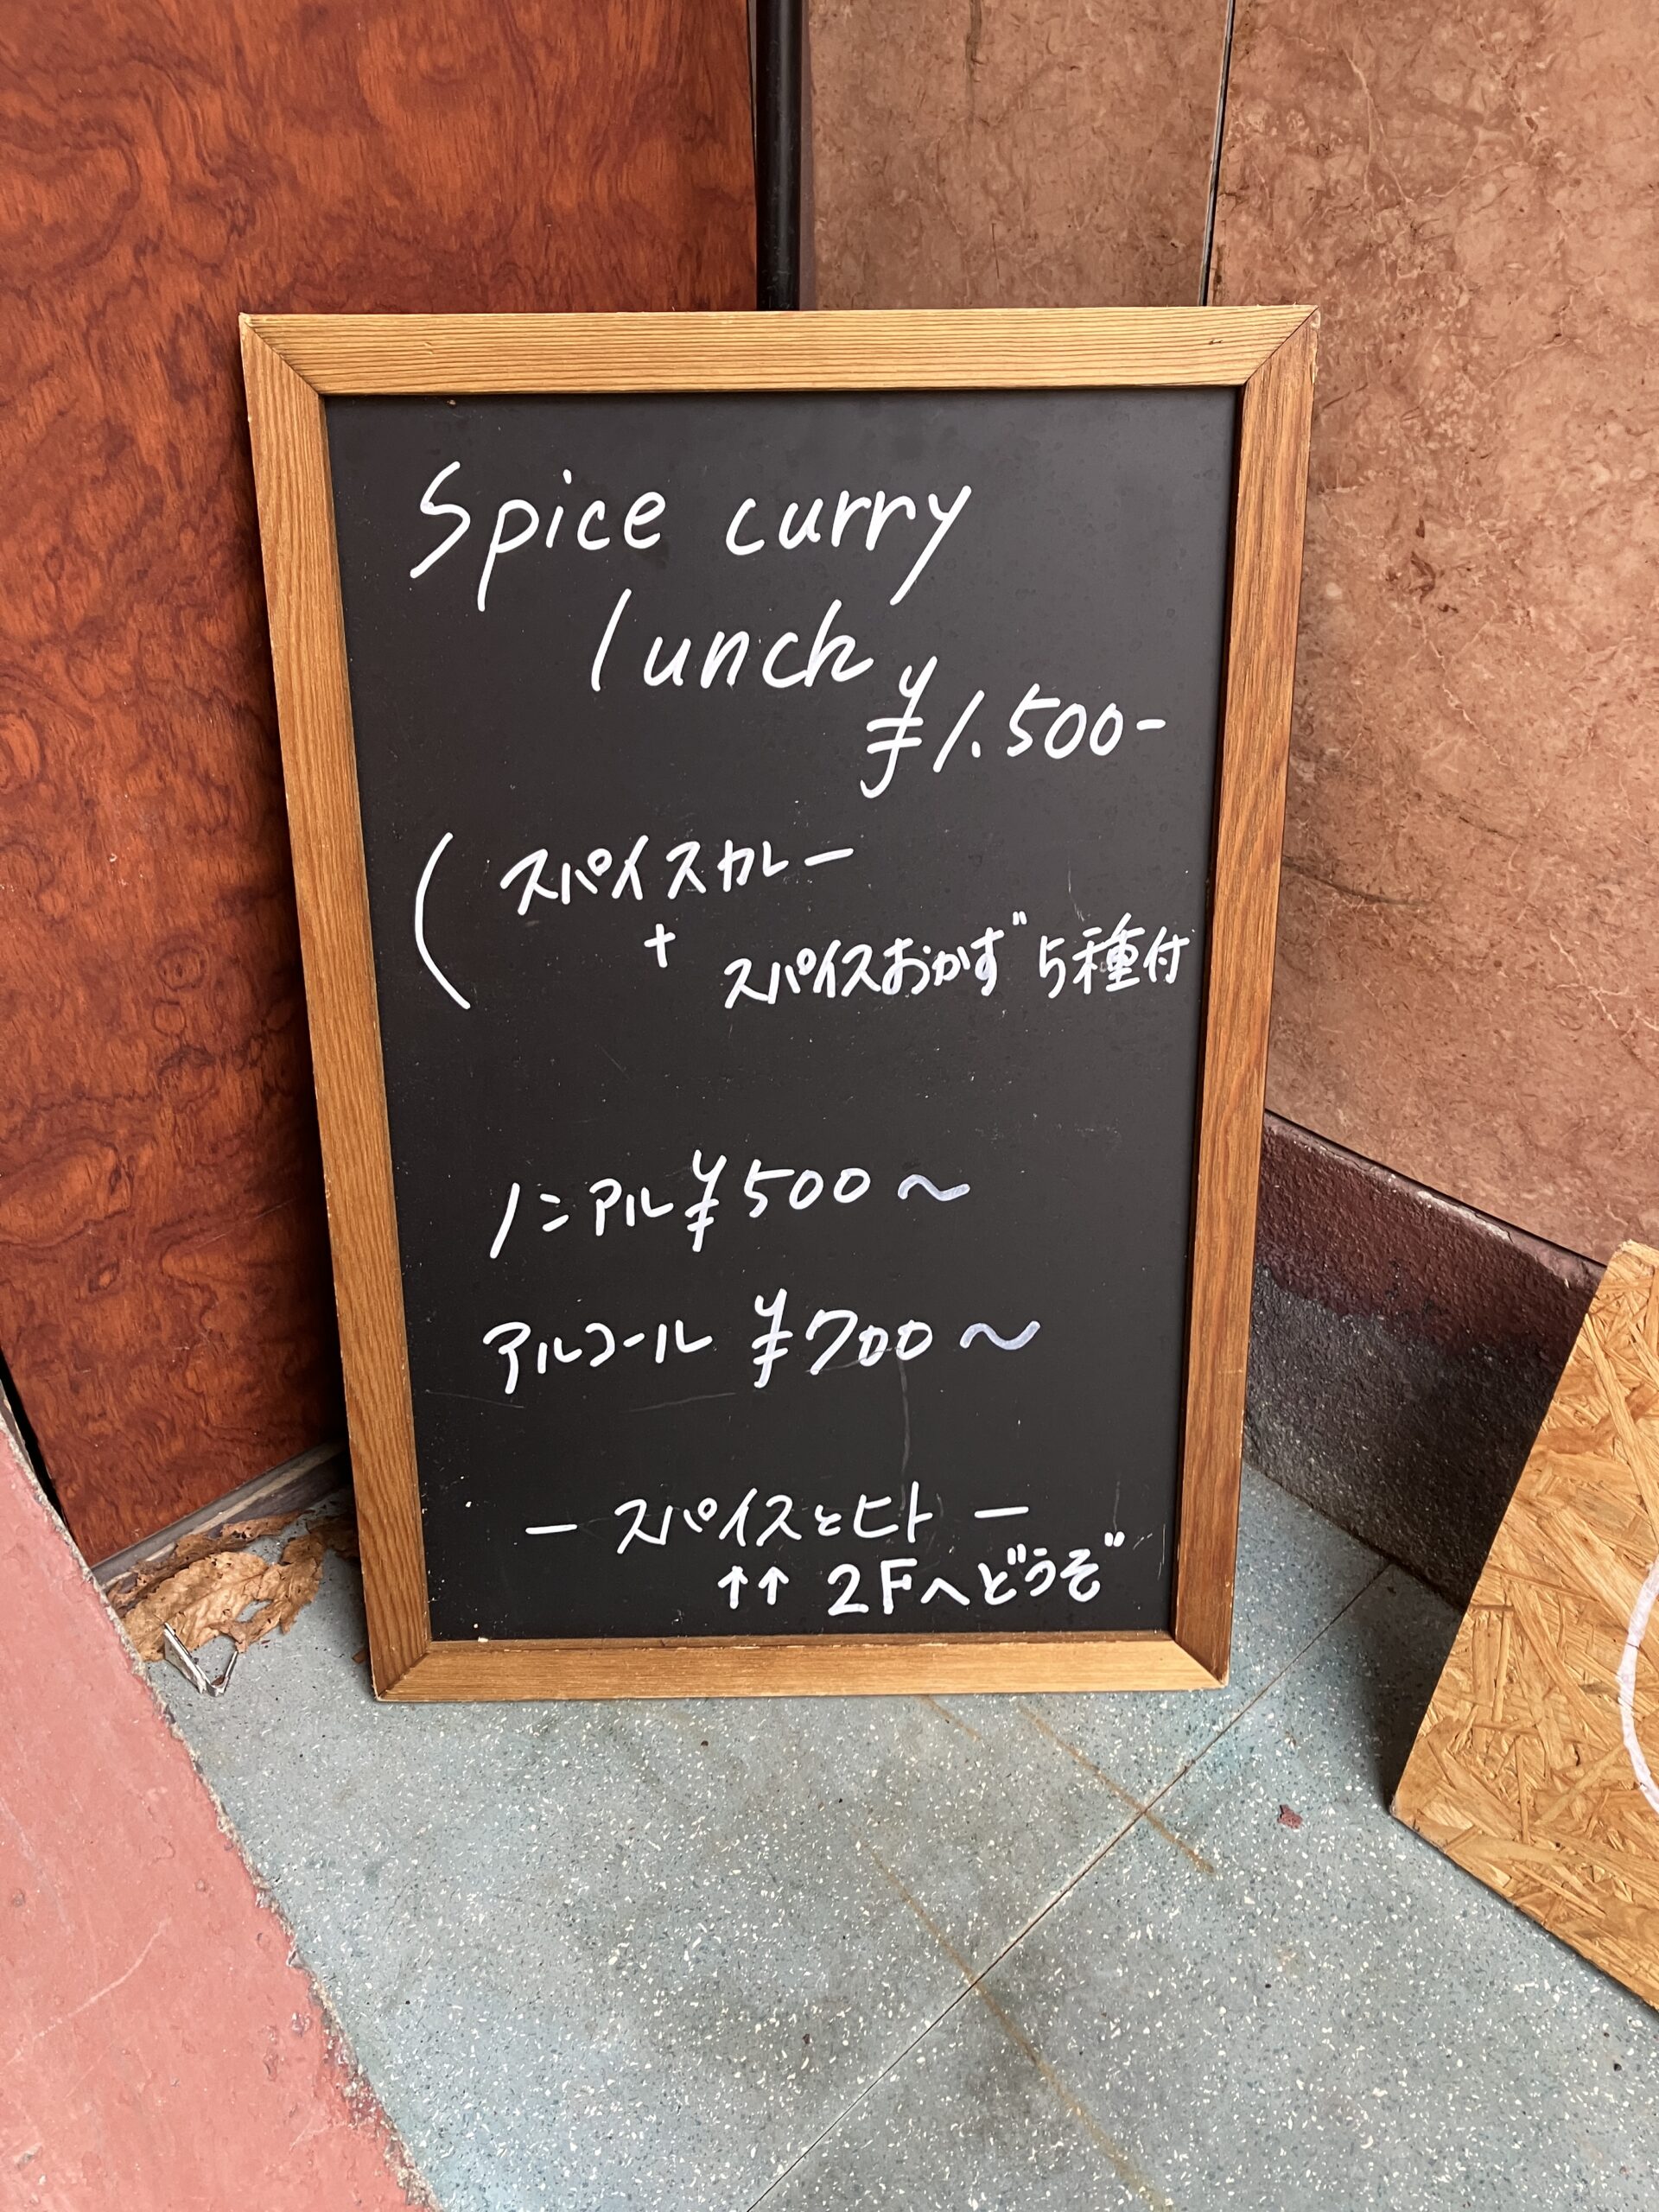 Spice curry
lunch
¥1.500-
( スパイスカレー
+
スパイスおかず5種付
ノンアル ¥500～
アルコール ¥700～
― スパイスとヒト ―
↑↑ 2Fへどうぞ